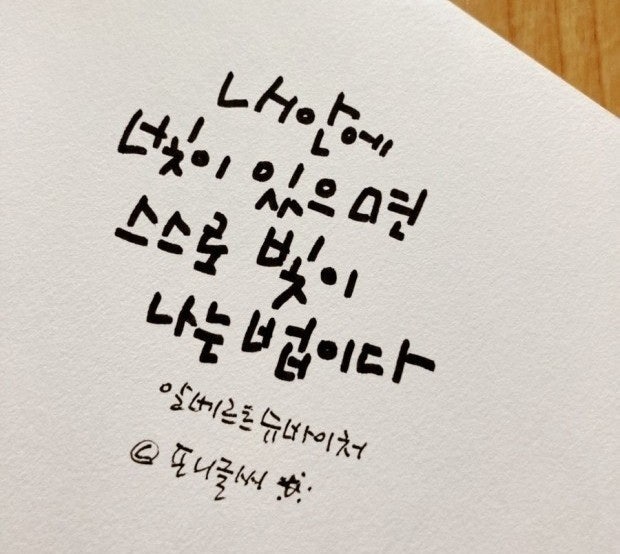 내안에
빛이 있으면
스스로 빛이
나는 법이다
알베르트슈바이처
© 또니글씨